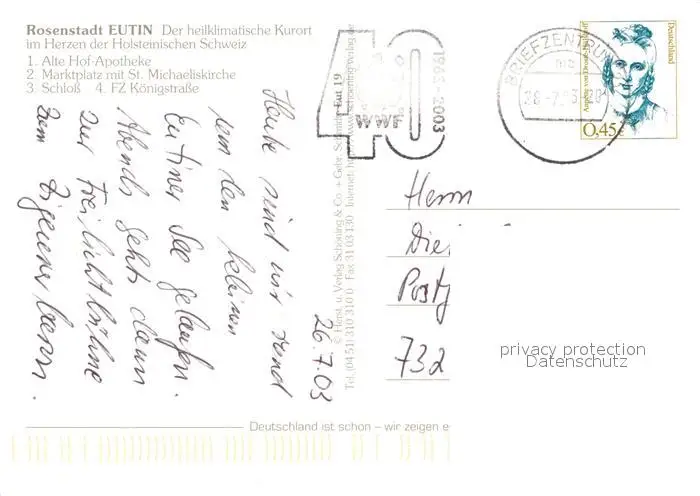 Rosenstadt EUTIN Der heilklimatische Kurort
im Herzen der Holsteinischen Schweiz
1. Alte Hof-Apotheke
2. Marktplatz mit St. Michaeliskirche
3. Schloß 4. FZ Königstraße
26.7.03
Heute sind wir rund
um den kleinen
Eutiner See gelaufen.
Abends gehts dann
zur Freilichtbühne
zum Zigeunerbaron.
Eut 19
© Herst. u. Verlag Schöning & Co. + Gebr. Schmidt
Tel. (04 51) 310 310 0 · Fax 31 03 130 · Internet:
40
WWF
1963-2003
BRIEFZENTRUM
Deutschland
Annette von Droste-Hülshoff
0,45€
Herrn
Postf
732
privacy protection
Datenschutz
Deutschland ist schön – wir zeigen e